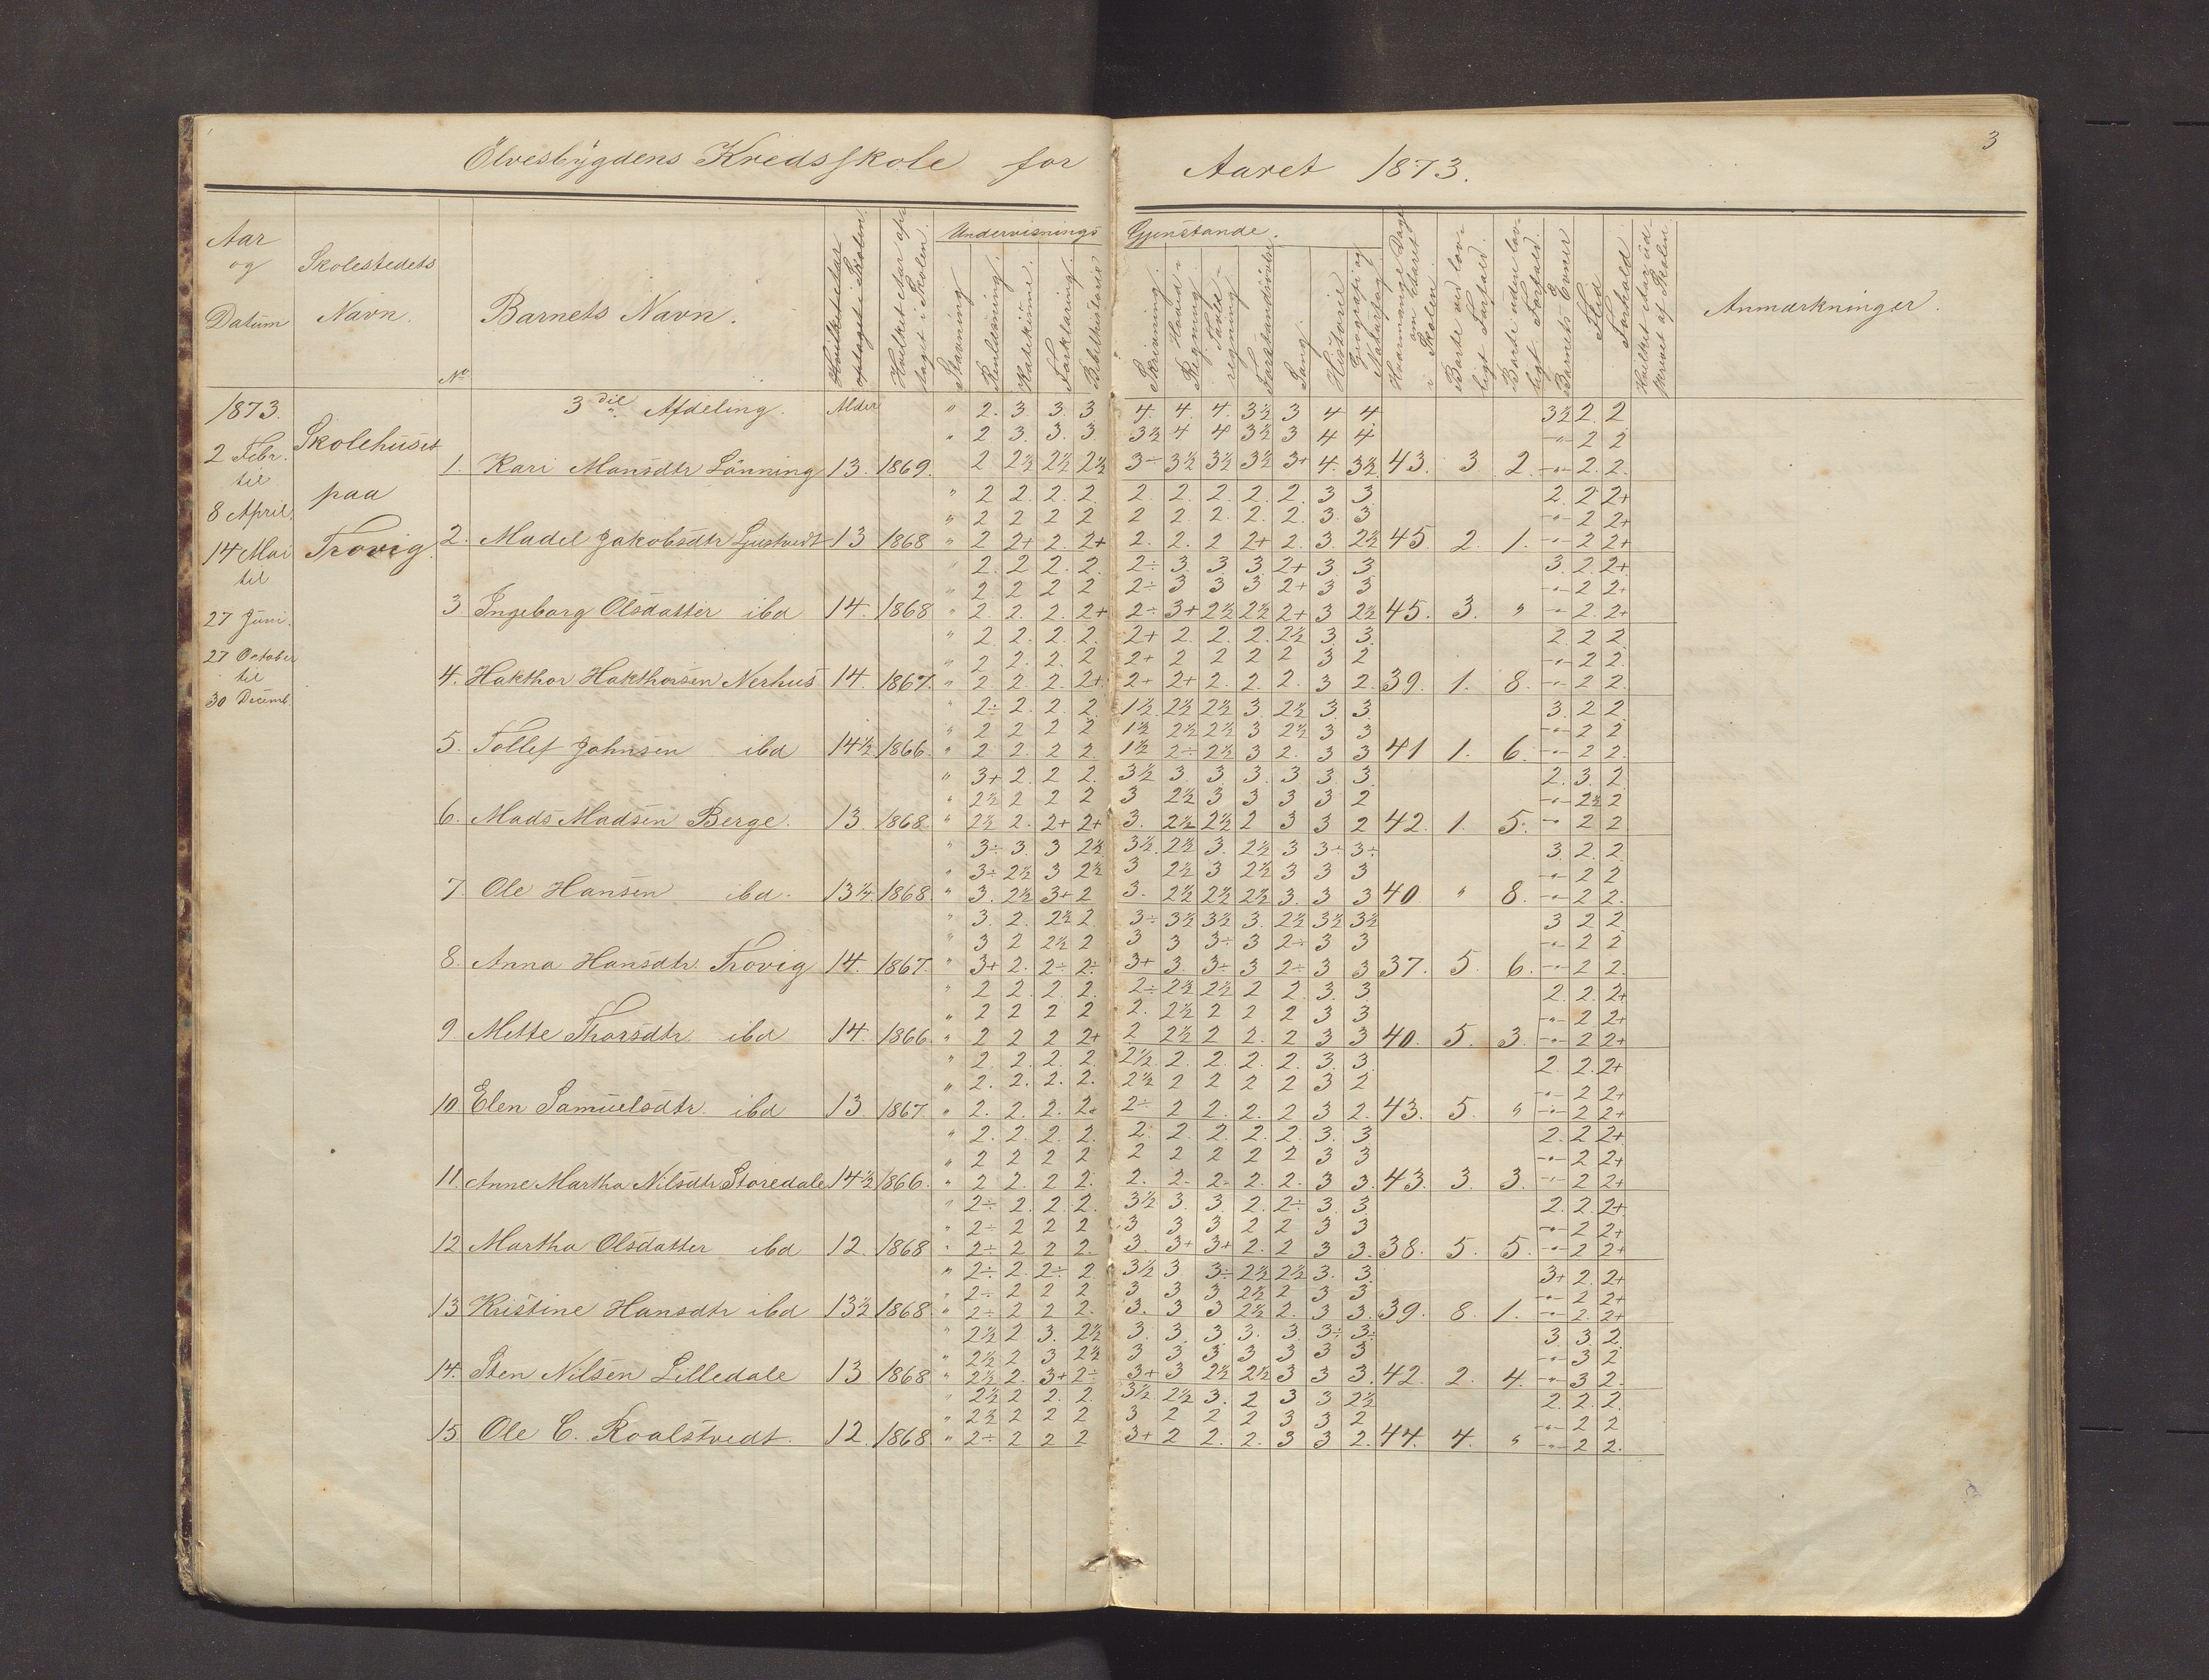 Elvesbygdens Kredsskole for Aaret 1873. 3
Aar og Datum
Skolestedets Navn.
No
Barnets Navn.
Hvilket Aar optaget i Skolen.
Undervisnings Gjenstande.
Stavning
Renlæsning.
Katekisme.
Forklaring.
Bibelhistorie
Skrivning.
Hoved-Regning.
Tavle-regning
Forstandsøvelse
Sang.
Historie
Geografi og Naturfag
Hvormange Dage om Aaret i Skolen.
Borte ved lovligt Forfald.
Borte uden lovligt Forfald.
Barnets Evner
Flid
Forhold.
Hvilket Aar udskrevet af Skolen
Anmærkninger.
1873.
2 Febr.
til
8 April.
14 Mai
til
27 Juni.
27 October
til
30 Decemb.
Skolehuset
paa
Trovig.
3die Afdeling. Alder " 2. 3. 3. 3 4. 4. 4. 3½ 3 4 4 3½ 2. 2
" 2 3. 3. 3. 3½ 4 4 3½ 3 4 4. -"- 2 2
1. Kari Mansdtr Lönning 13. 1869. 2 2½ 2½ 2½ 3÷ 3½ 3½ 3½ 3+ 4. 3½ 43. 3 2. -"- 2. 2.
" 2 2. 2. 2. 2. 2. 2. 2. 2. 3 3. 2. 2 2+
" 2 2 2 2 2 2. 2. 2. 2. 3. 3 -"- 2 2+
2. Madel Jakobsdtr 13 1868 " 2 2+ 2. 2+ 2. 2. 2 2+ 2. 3. 2½ 45. 2. 1. -"- 2 2+
" 2. 2 2. 2. 2÷ 3. 3. 3. 2+ 3. 3 3. 2. 2+
" 2 2 2 2 2÷ 3 3 3 2+ 3 3 -"- 2 2+
3. Ingeborg Olsdatter ibd 14. 1868 " 2. 2. 2. 2+ 2÷ 3+ 2½ 2½ 2+ 3 2½ 45. 3. " -"- 2. 2+
" 2 2. 2. 2. 2+ 2. 2. 2. 2½ 3. 3. 2. 2. 2
" 2 2. 2. 2 2+ 2 2 2 2 3 2 -"- 2 2.
4. Hakthor Hakthorsen Nerhus 14. 1867. " 2. 2. 2. 2+ 2+ 2+ 2. 2. 2. 3 2. 39. 1. 8. -"- 2 2.
" 2÷ 2. 2. 2. 1½ 2½ 2½ 3. 2½ 3. 3. 3. 2 2.
" 2 2 2 2 1½ 2½ 2½ 3 2½ 3 3 -"- 2 2
5. Tollef Johnsen ibd 14½ 1866. " 2 2. 2. 2. 1½ 2÷ 2½ 3 2. 3 3 41 1. 6. -"- 2 2.
" 3+ 2. 2 2. 3½ 3 3 3. 3 3. 3. 2. 3. 2
" 2½ 2 2 2 3 2½ 3 3 3 3 2 -"- 2½ 2
6. Mads Madsen Berge. 13. 1868. " 2½ 2. 2+ 2+ 3. 2½ 2½ 2 3 3 2 42. 1. 5. -"- 2 2
" 3÷ 3. 3 2½ 3½ 2½ 3. 2½ 3 3÷ 3÷ 3. 2. 2.
" 3÷ 2½ 3 2½ 3 2½ 3 2½ 3 3 3 -"- 2 2
7. Ole Hansen ibd. 13¼ 1868. " 3. 2½ 3+ 2 3. 2½ 2½ 2½ 3. 3 3 40 " 8. -"- 2 2.
" 3. 2. 2½ 2. 3÷ 3½ 3½ 3. 2½ 3½ 3½ 3 2 2
" 3 2 2½ 2 3 3 3÷ 3 2÷ 3 3 -"- 2 2
8. Anna Hansdtr. Trovig 14. 1867. " 3+ 2. 2÷ 2÷ 3+ 3. 3÷ 3 2÷ 3 3 37. 5. 6. -"- 2 2.
" 2 2. 2. 2. 2÷ 2½ 2½ 2 2. 3. 3 2. 2. 2+
" 2 2 2 2 2. 2½ 2 2 2 3 3 -"- 2 2+
9. Mette Thorsdtr. ibd 14. 1866. " 2 2 2 2+ 2 2½ 2 2. 2 3 3 40. 5. 3. -"- 2 2+
" 2. 2. 2. 2. 2½ 2. 2. 2. 2. 3. 3. 2. 2. 2+
" 2. 2. 2. 2. 2½ 2 2 2 2 3 2 -"- 2 2+
10. Elen Samuelsdtr. ibd 13 1867. " 2. 2. 2. 2. 2÷ 2 2. 2. 2 3 2. 43. 5. " -"- 2 2+
" 2. 2. 2. 2. 2. 2. 2. 2. 2. 3. 3 2. 2 2+
" 2 2 2 2 2 2 2 2 2 3 3 -"- 2 2+
11. Anne Martha Nilsdtr Storedale 14½ 1866. " 2 2. 2 2. 2. 2. 2. 2. 2. 3 3. 43. 3. 3. -"- 2 2+
" 2÷ 2. 2. 2. 3½ 3. 3. 2. 2÷ 3. 3. 2. 2. 2+
" 2÷ 2 2 2 3 3 3 2 2 3 3 -"- 2 2+
12 Martha Olsdatter ibd 12. 1868 " 2÷ 2 2 2. 3. 3+ 3+ 2. 2 3 3. 38. 5. 5. -"- 2 2+
" 2÷ 2. 2÷ 2. 3½ 3 3÷ 2½ 2½ 3. 3. 3+ 2. 2+
" 2÷ 2 2 2 3 3 3 2½ 2 3 3 -"- 2 2+
13 Kristine Hansdtr ibd 13½ 1868. " 2÷ 2 2 2. 3. 3 3 2½ 2. 3 3. 39. 8. 1. -"- 2. 2+
" 2½ 2 3. 2½ 3. 3. 3 3. 3 3÷ 3÷ 3 3. 2.
" 2½ 2 3 2½ 3 3 3 3 3 3 3 -"- 3 2
14. Sten Nilsen Lilledale 13 1868 " 2½ 2. 3+ 2÷ 3+ 3 2½ 2½ 3 3 3. 42. 2. 4. -"- 3 2.
" 2½ 2 2. 2. 3½ 2½ 3. 2 3 3 2½ 2. 2. 2.
" 2½ 2 2 2 3 2 2 2 3 3 2 -"- 2 2
15 Ole C. Roalstvedt. 12. 1868 " 2÷ 2 2 2 3+ 2 2. 2. 3 3 2. 44. 4. " -"- 2 2.